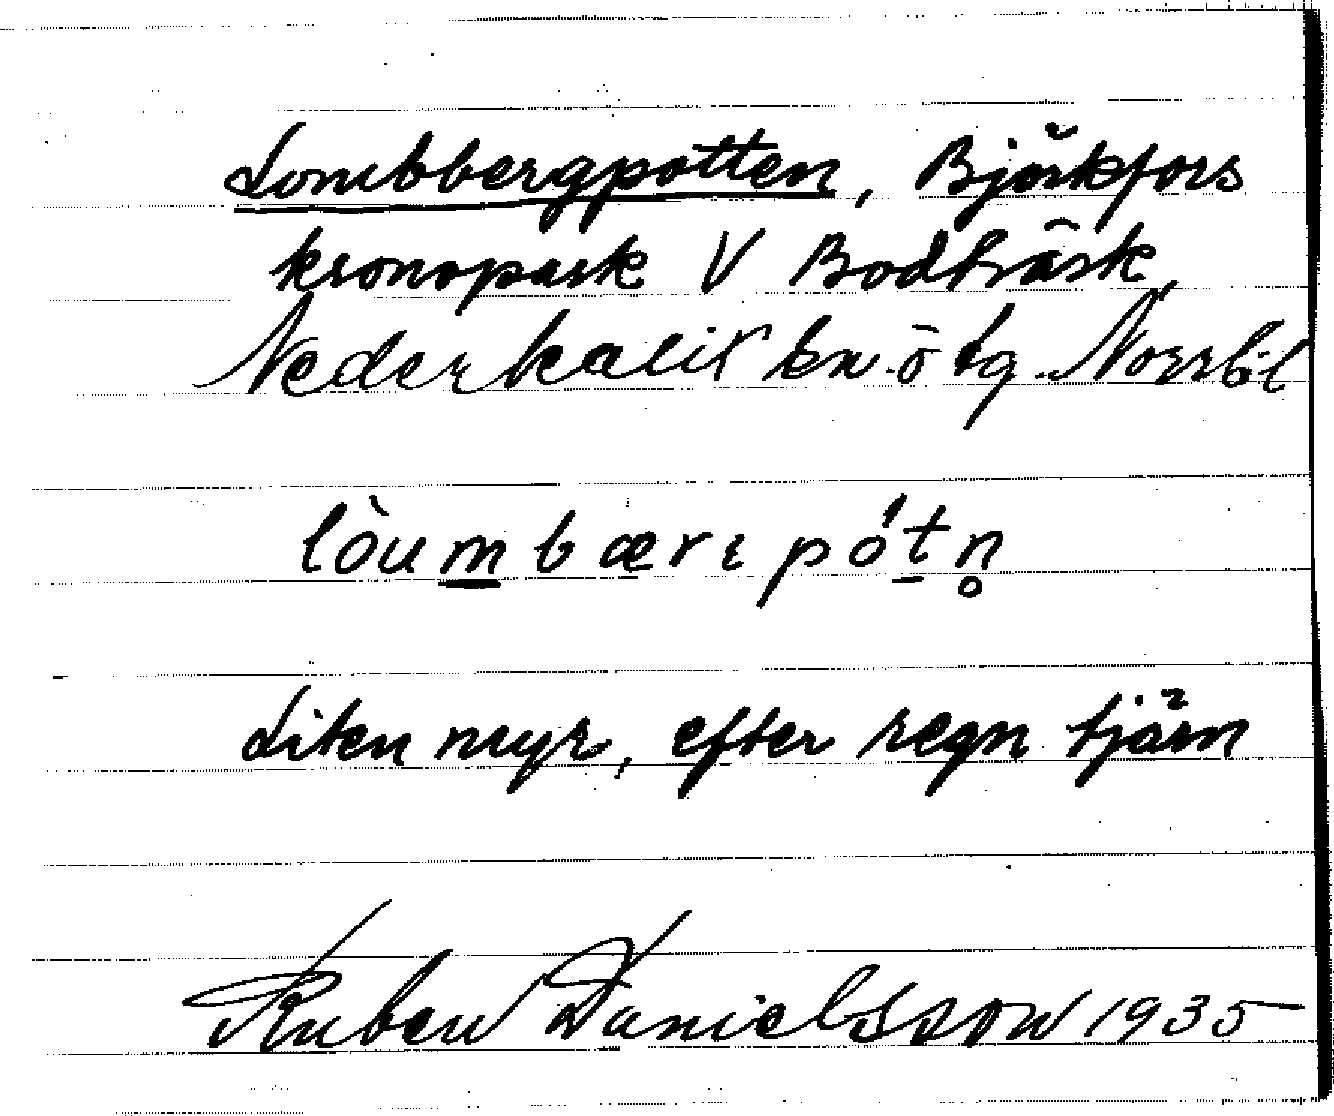 Lombbergpotten, Björkfors
kronopark V Bodträsk,
Nederkalix kn. ö tg. Norrb.l
lòumbærɩpótn̥
Liten myr, efter regn tjärn
Ruben Danielsson 1935